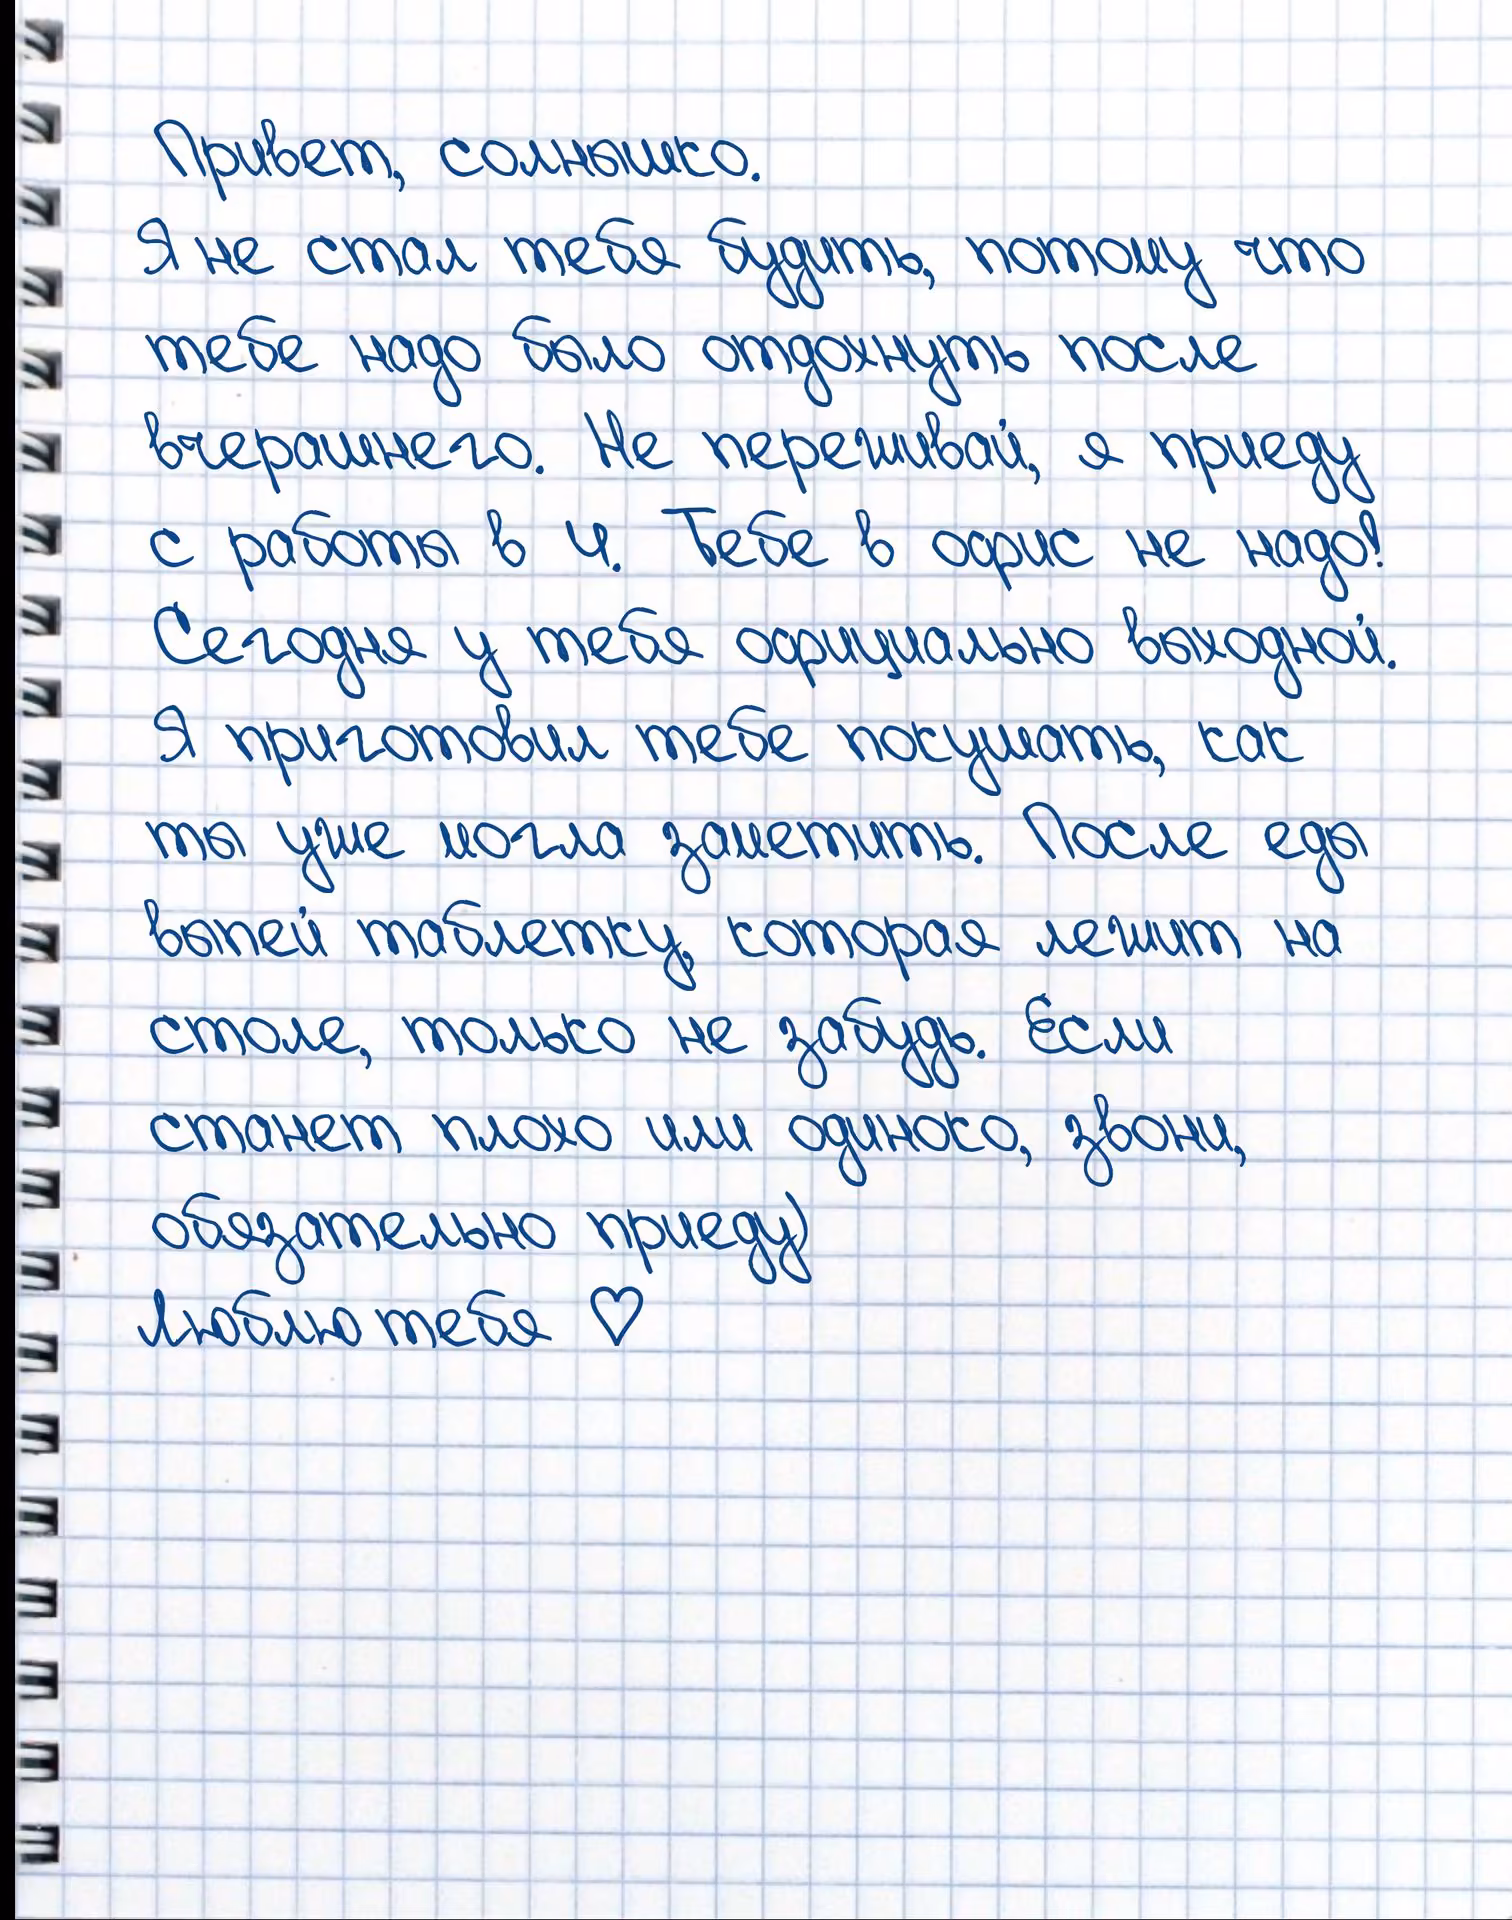 Привет, солнышко.
Я не стал тебя будить, потому что
тебе надо было отдохнуть после
вчерашнего. Не переживай, я приеду
с работы в 4. Тебе в офис не надо!
Сегодня у тебя официально выходной.
Я приготовил тебе покушать, как
ты уже могла заметить. После еды
выпей таблетку, которая лежит на
столе, только не забудь. Если
станет плохо или одиноко, звони,
обязательно приеду)
Люблю тебя ♡